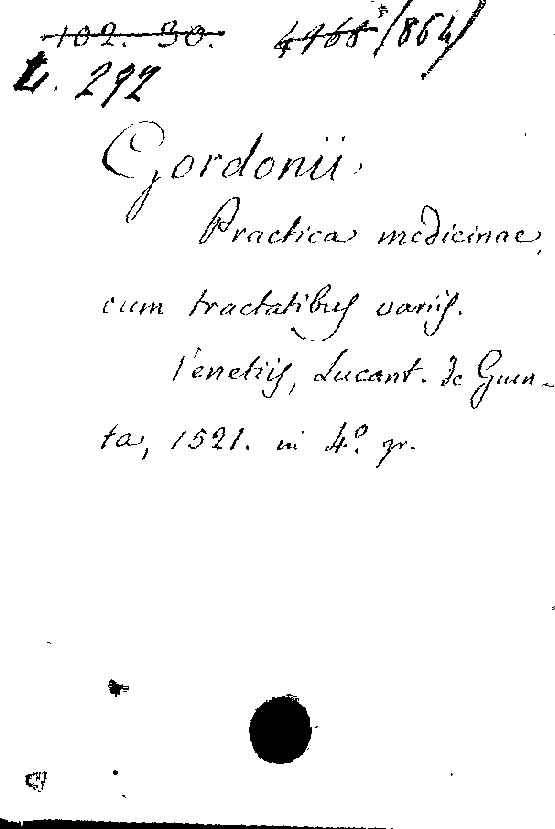 102. 30. 4468 /864/
L. 292
Gordonii
Practica medicinae,
cum tractatibus variis.
Venetiis, Lucant. de Giun-
ta, 1521. in 4º. gr.